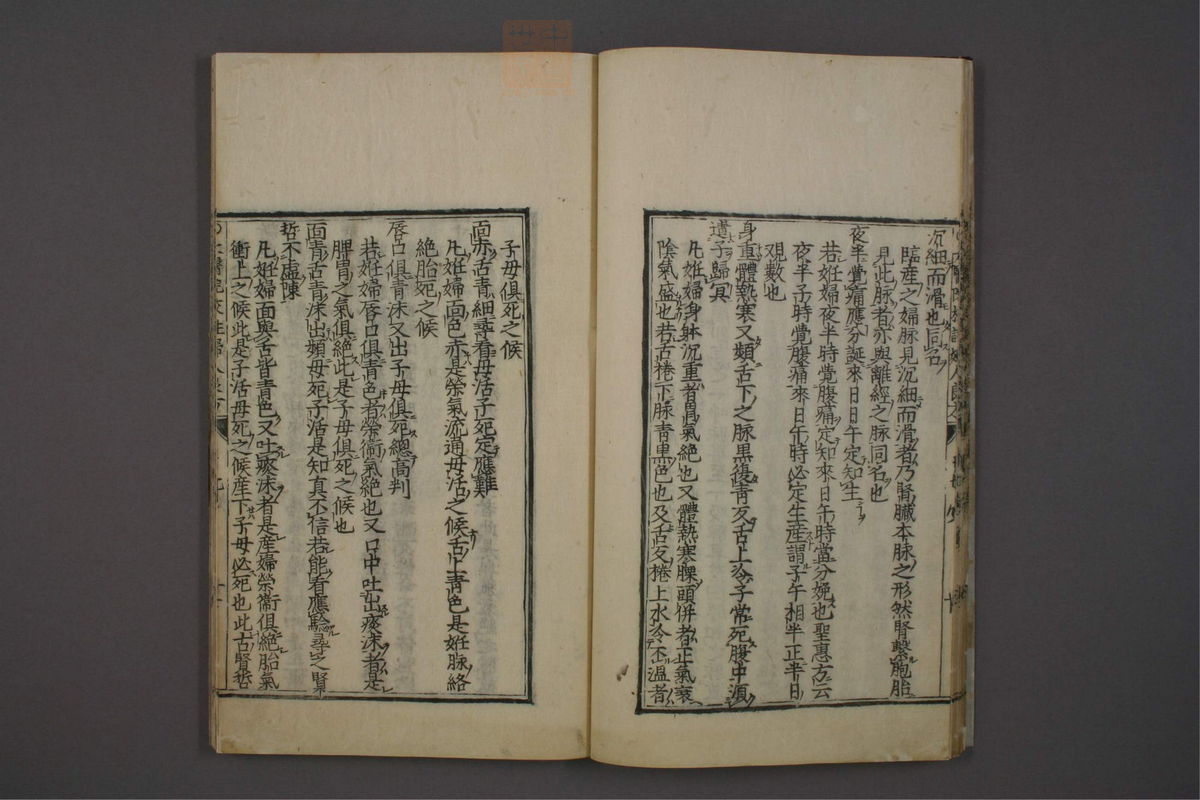 沉細而滑也同名
臨産之婦脉見沉細而滑者乃腎臓本脉之形然腎繫胞胎
見此脉者亦與離經之脉同名也
夜半覺痛應分誕來日日午定知生
若妊婦夜半時覺腹痛定知來日午時當分娩也聖惠方云
夜半子時覺腹痛來日午時必定生産謂子午相半正半日
覌數也
身重體熱寒又頻舌下之脉黒復青反舌上冷子常死腹中湏
遣子歸冥
凡妊婦身躰沉重者胃氣絶也又體熱寒
頻併者正氣衰
陰氣盛也若舌捲下脉青黒色也及舌反捲上水冷不温者
子母俱死之候
面赤舌青細尋看母活子死定應難
凡妊婦面色赤是榮氣流通母活之候舌上青色是妊脉絡
絶胎死之候
唇口俱青沫又出子母俱死總高判
若妊婦唇口俱青色者榮衛氣絶也又口中吐出痰沫者是
脾胃之氣俱絶此是子母俱死之候也
面青舌青沫出頻母死子活是知真不信若能看應驗尋之賢
哲不虚陳
凡妊婦面與舌皆青色又吐痰沫者是産婦榮衛俱絶胎氣
衝上之候此是子活母死之候産下子母必死也此古賢哲